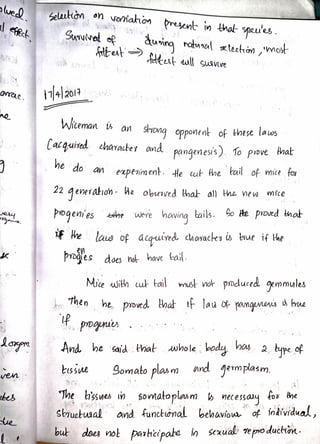 plued
Selection on variation present in that species.
l effect.
Survival of fittest ⇒ during natural selection, "most
fittest will survive
17/4/2017
Wiceman is an strong opponent of these laws
(acquired character and pangenesis). To prove that
he do an experiment. He cut the tail of mice for
22 generation. He observed that all the new mice
progenies were having tails. So He proved that
if the law of acquired character is true if the
progies does not have tail.
Mice with cut tail must not produced gemmules
Then he proved that if law of pangenesis is true
if progenies
And he said that whole body has 2 type of
tissue Somatoplasm and germplasm.
The tissues in somatoplasm is necessary for the
structural and functional behaviour of individual,
but does not participate in sexual reproduction.